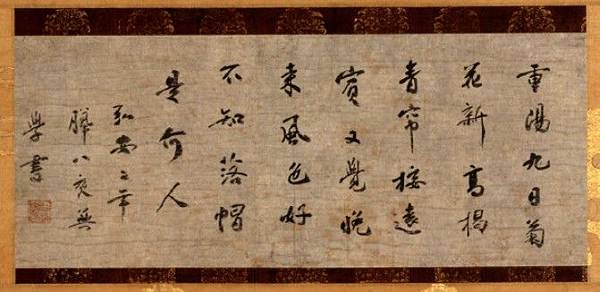 重陽九日菊
花新高掲
青帘接遠
賓又覺晚
来風色好
不知落帽
是何人
弘安二年
臘八夜無
学書